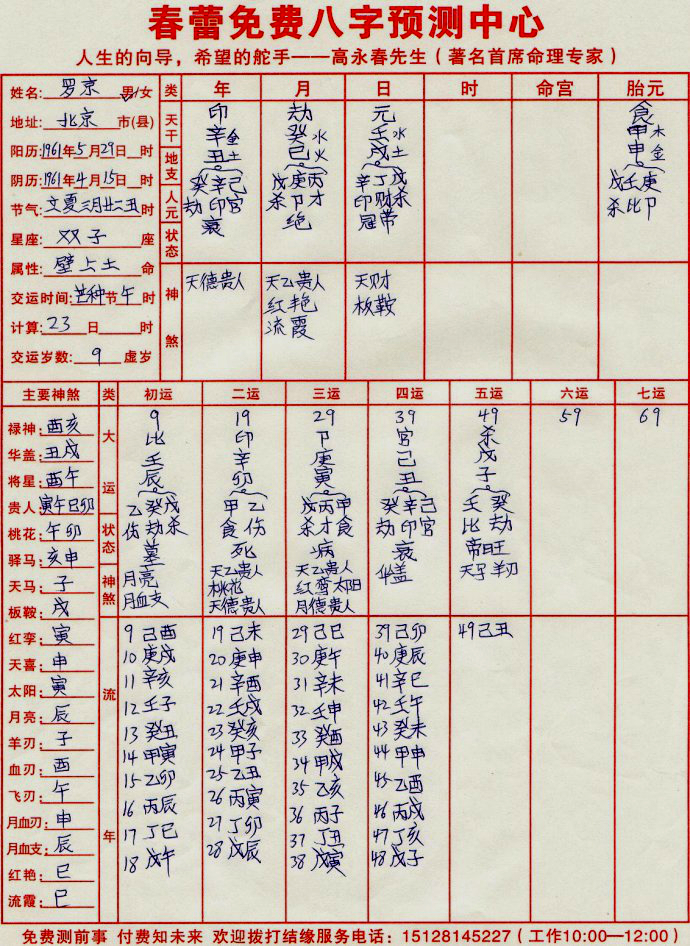 春蕾免费八字预测中心
人生的向导，希望的舵手——高永春先生（著名首席命理专家）
姓名: 罗京 男/女 类 年 月 日 时 命宫 胎元
地址: 北京 市(县)
阳历: 1961年5月29日 时
阴历: 1961年4月15日 时
节气: 立夏三月廿二丑时
星座: 双子 座
属性: 壁上土 命
交运时间: 芒种节午时
计算: 23 日 时
交运岁数: 9 虚岁
天干 印 劫 元 食
辛金 癸水 壬水 甲木
地支 丑土 巳火 戌土 申金
人元 癸辛己 戊庚丙 辛丁戊 戊壬庚
劫印官 杀卩才 印财杀 杀比卩
状态 衰 绝 冠带
神煞 天德贵人 天乙贵人 天财
红艳 板鞍
流霞
主要神煞 类 初运 二运 三运 四运 五运 六运 七运
禄神: 酉亥
华盖: 丑戌
将星: 酉午
贵人: 寅午巳卯
桃花: 午卯
驿马: 亥申
天马: 子
板鞍: 戌
红孪: 寅
天喜: 申
太阳: 寅
月亮: 辰
羊刃: 子
血刃: 酉
飞刃: 午
月血刃: 申
月血支: 辰
红艳: 巳
流霞: 巳
大运 9 19 29 39 49 59 69
比 印 卩 官 杀
壬 辛 庚 己 戊
辰 卯 寅 丑 子
乙癸戊 甲乙 戊丙甲 癸辛己 壬癸
伤劫杀 食伤 杀才食 劫印官 比劫
状态 墓 死 病 衰 帝旺
神煞 月亮 天乙贵人 天乙贵人 华盖 羊刃
月血支 桃花 太阳
天德贵人 月德贵人
流年 9己酉 19己未 29己巳 39己卯 49己丑
10庚戌 20庚申 30庚午 40庚辰
11辛亥 21辛酉 31辛未 41辛巳
12壬子 22壬戌 32壬申 42壬午
13癸丑 23癸亥 33癸酉 43癸未
14甲寅 24甲子 34甲戌 44甲申
15乙卯 25乙丑 35乙亥 45乙酉
16丙辰 26丙寅 36丙子 46丙戌
17丁巳 27丁卯 37丁丑 47丁亥
18戊午 28戊辰 38戊寅 48戊子
免费测前事 付费知未来 欢迎拨打结缘服务电话：15128145227（工作10:00—12:00）